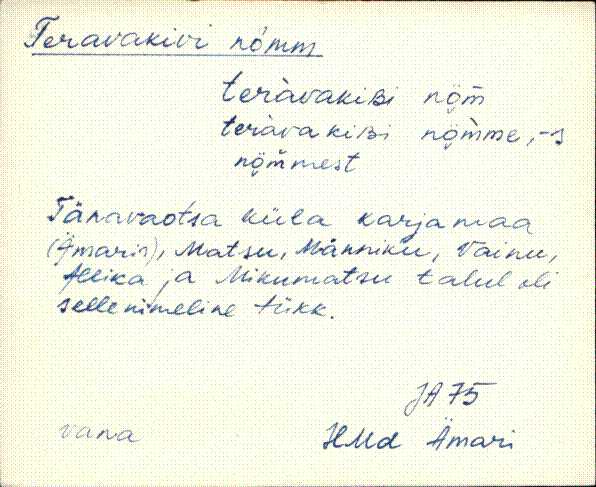 Teravakivi nõmm
teràvakiʙi nO̭m̄
teràvakiʙi nO̭m̀me, -s
nO̭m̆mest
Tänavaotsa küla karjamaa
(Ämaris), Matsu, Männiku, Vainu,
Allika ja Mikumatsu talul oli
sellenimeline tükk.
JA 75
vana
HMd Ämari